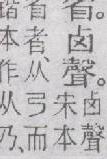 省。卤聲。
卤聲
宋本
者、从弓而
本作从乃、